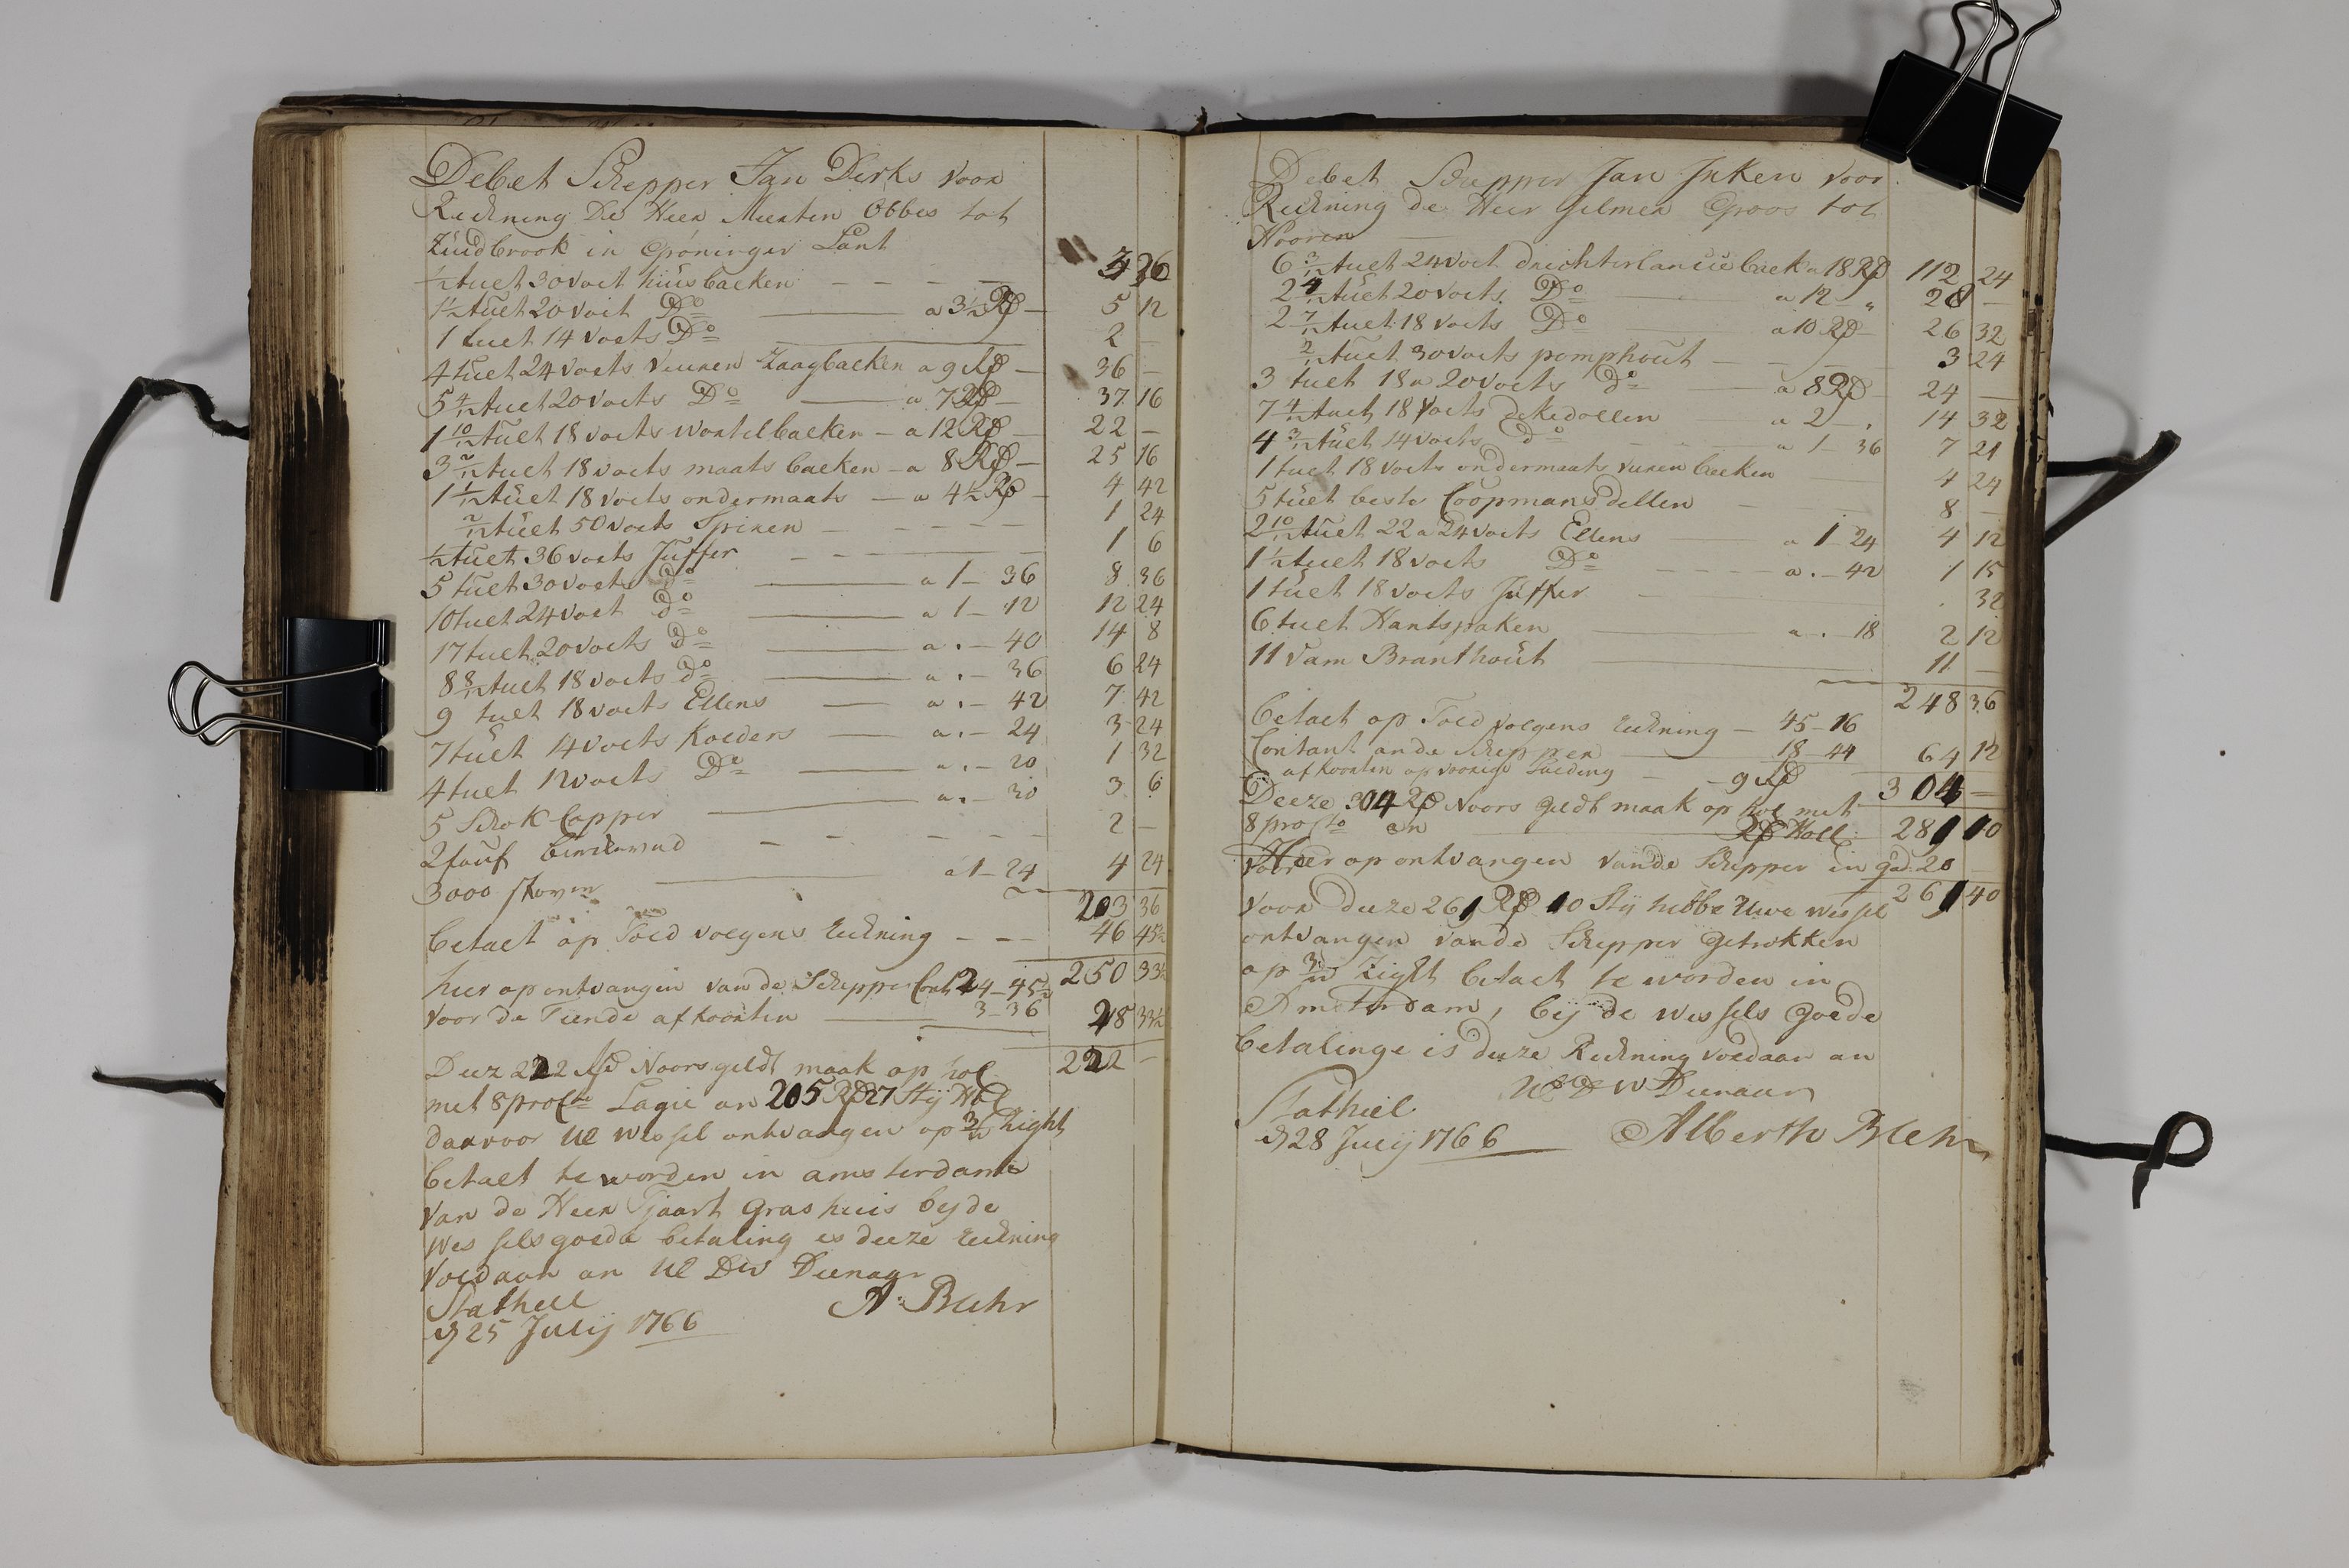 Debet Schepper Jan Derks voor
Rechning De Heer Meerten Obbes tot
Zuidbrook in Gröninger Lant
½ tuet 30 voet huis balken — — — 3 36
1½ tuet 20 voet Do — a 3½ RD — 5 12
1 tuet 14 voets Do 2 —
4 tuet 24 voets vuuren Zaagbalken a 9 RD — 36 —
5 4/12 tuet 20 voets Do — a 7 RD — 37 16
1 10/12 tuet 18 voets wortelbalken — a 12 RD — 22 —
3 2/12 tuet 18 voets maats balken — a 8 RD — 25 16
1 1/12 tuet 18 voets ondermaats — a 4½ RD — 4 42
2/12 tuet 50 voets Spiren — — — 1 24
½ tuet 36 voets Juffer — — — 1 6
5 tuet 30 voets Do — a 1 — 36 8 36
10 tuet 24 voet do — a 1 — 12 12 24
17 tuet 20 voets Do — a . — 40 14 8
8 8/12 tuet 18 voets do — a . — 36 6 24
9 tuet 18 voets Ellens — a . — 42 7 42
7 tuet 14 voets Kolders — a . — 24 3 24
4 tuet 12 voets Do — a . — 20 1 32
5 Schok Capper — a . — 30 3 6
2 — — — 2 —
3000 — a 1 — 24 4 24
203 36
betaelt op Told volgens rechning — — — 46 45½
250 33½
hier op ontvangen van de Schepper Cont 24 — 45½
voor de Tiende afkoorten — 3 — 36 28 33½
Deez 222 RD Noors geldt maak op hol 222 —
met 8 proCto Lagie an 205 RD 27 Stij Hol
daarvoor UE wessel ontvangen op 3/m Zight
betaelt te worden in amsterdam
van de Heer Tjaart Grashuis beyde
wessels goede betaling es deeze rechning
voldaan an UE DW Deenaar
Stathell A. Blehr
d 25 Julij 1766
Debet Schepper Jan Inken voor
Rechning de Heer Jelmer Groos tot
Hooren
6 3/12 tuet 24 voet drichterlandse balk a 18 RD 112 24
2 4/12 tuet 20 voets Do — a 12 — „ 28 —
2 7/12 tuet 18 voets Do — a 10 RD 26 32
2/12 tuet 30 voets pomphout — — — 3 24
3 tuet 18 a 20 voets Do — a 8 RD 24 —
7 4/12 tuet 18 voets dekedollen a 2 — . 14 32
4 3/12 tuet 14 voets do — a 1 — 36 7 21
1 tuet 18 voets ondermaats vuren balken 4 24
5 tuet beste Coopmans dellen — 8 —
2 10/12 tuet 22 a 24 voets Ellens — a 1 — 24 4 12
1½ tuet 18 voets Do — a . — 42 1 15
1 tuet 18 voets Juffer — . 32
6 tuet Hantspaken — a . — 18 2 12
11 vam Branthout — 11 —
248 36
betaelt op Told volgens rechning — 45 — 16
Contant an de Schepper — 18 — 44 64 12
afkoorten op voorige Laeding — 9 RD
304 —
Deeze 304 RD Noors geldt maak op hol met
8 proCto an — RD Holl: 281 10
Hier op ontvangen van de Schepper in gad: 20
261 40
voor deeze 261 RD 10 Stij hebbe Uwe wessel
ontvangen van de Schepper getrokken
op 3/m Zight betaelt te worden in
Amsterdam, bij de wessels goede
betalinge is deeze Rechning voldaan an
UE DW Deenaar
Stathell
d 28 Julij 1766 Alberth Blehr